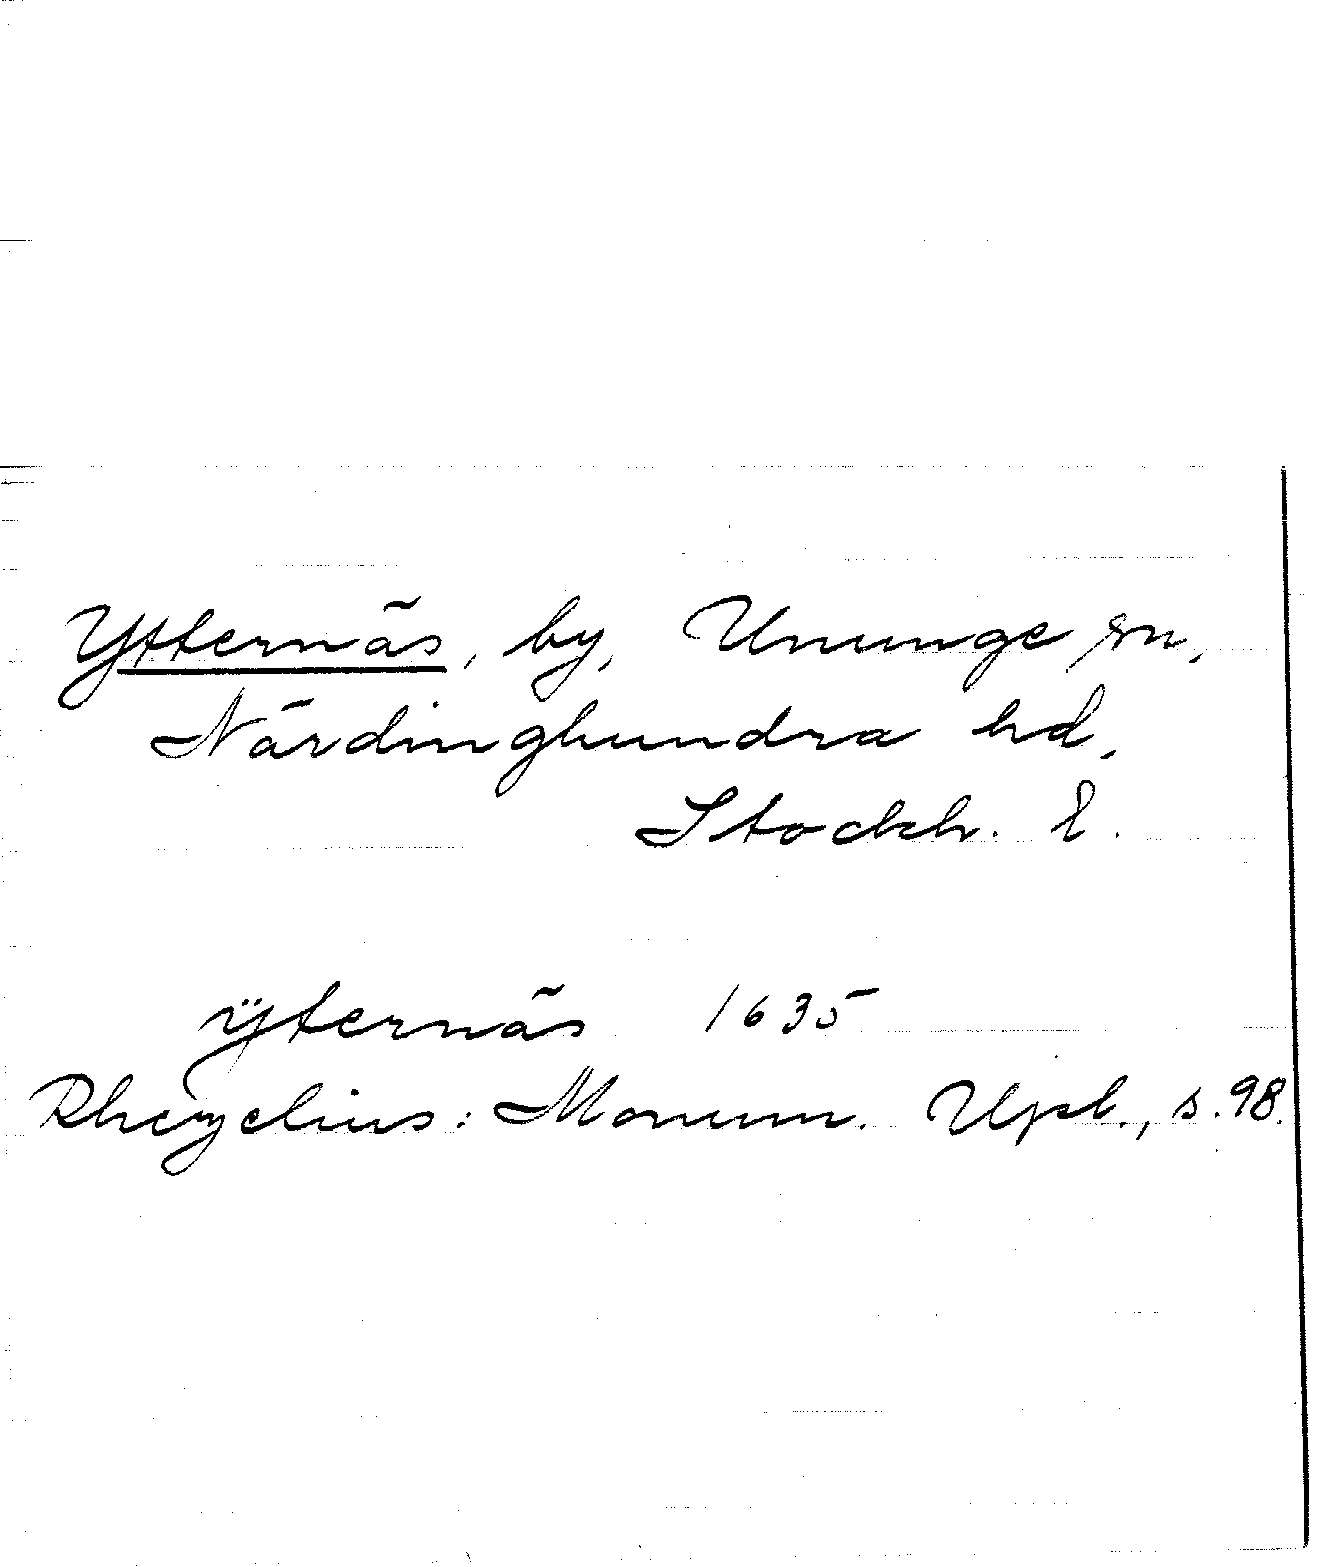 Ytternäs, by, Ununge sn,
Närdinghundra hd,
Stockh. l.
ÿternäs 1635
Rhezelius: Monum. Upl., s. 98.